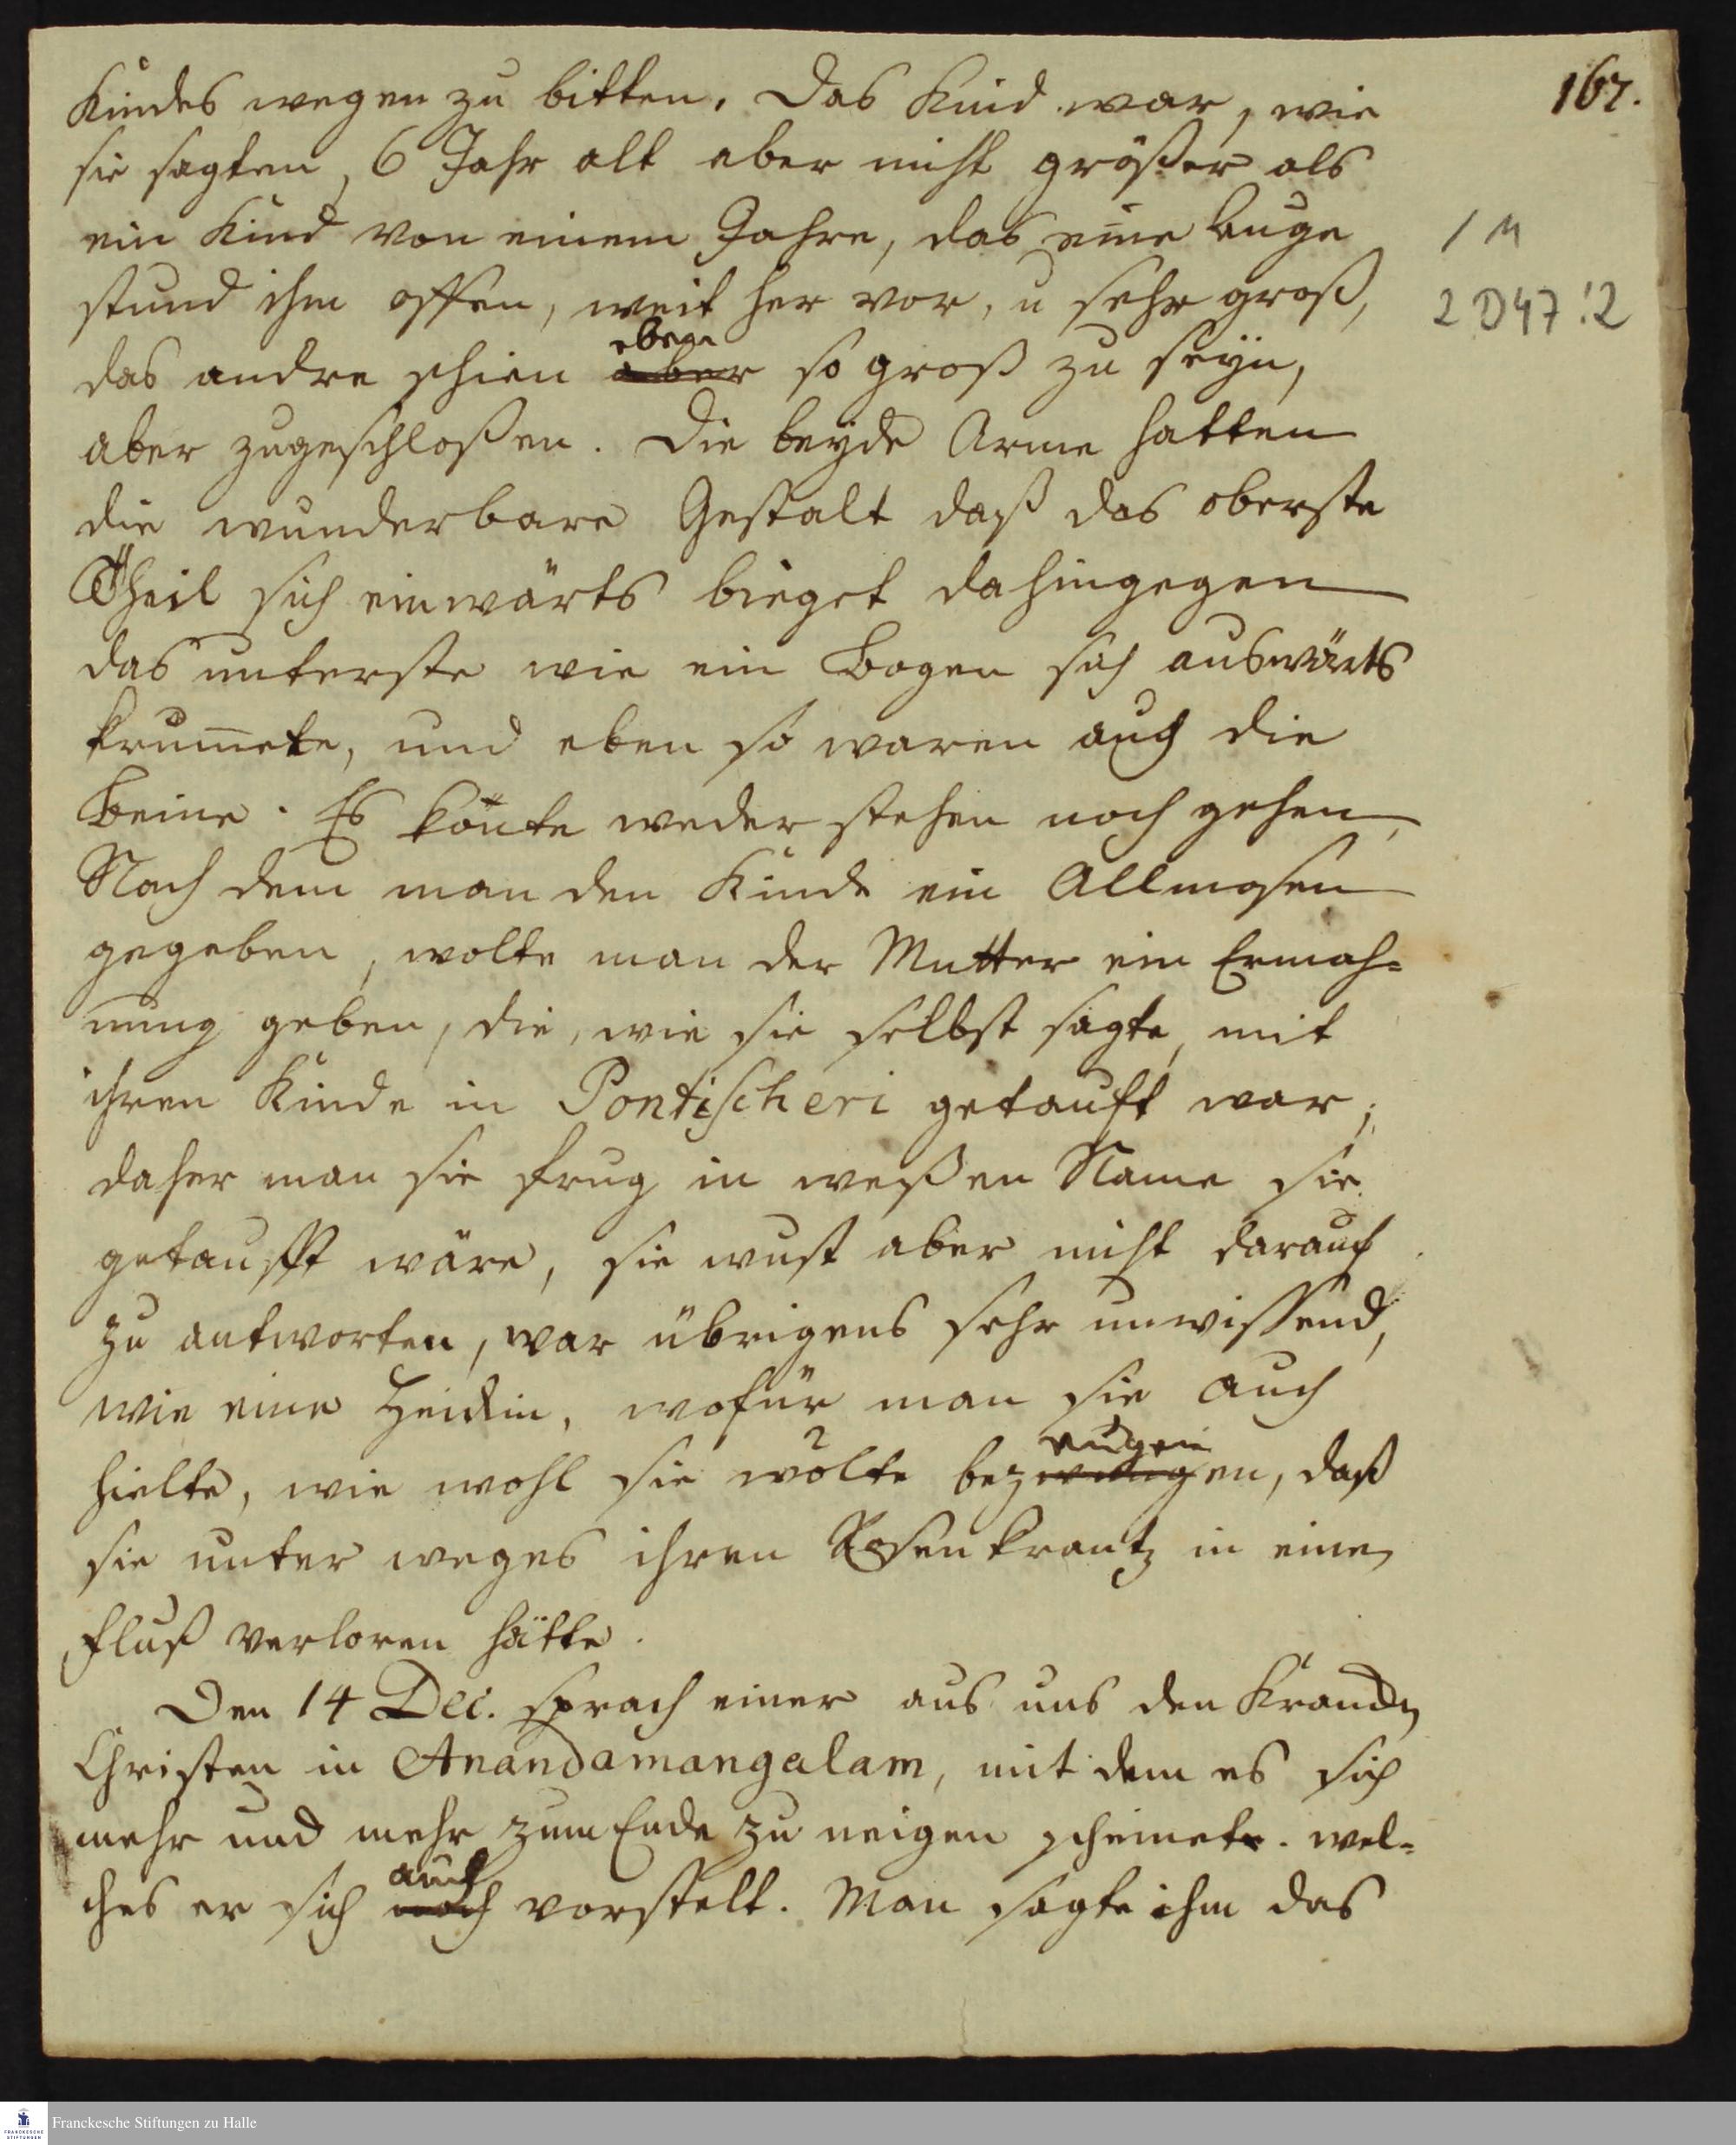 167.
Kindes wegen zu bitten. Das Kind war, wie
sie sagten, 6 Jahr alt aber nicht größer als
ein Kind von einem Jahre, das eine Auge
1 M
stund ihm offen, weit her vor, u sehr groß,
2 D47:2
eben
das andre schien aber so groß zu seyn,
aber zugeschloßen. Die beyde Arme hatten
die wunderbare Gestalt daß das oberste
Theil sich einwärts bieget dahingegen
das unterste wie ein Bogen sich auswärts
krum̄ete, und eben so waren auch die
Beine. Es kon̄te weder stehen noch gehen,
Nach dem man den Kinde ein Allmosen
gegeben, wolte man der Mutter ein Ermah=
nung geben, die, wie sie selbst sagte, mit
ihren Kinde in Pontischeri getauft war;
daher man sie frug in weßen Name sie
getaufft wäre, sie wust aber nicht darauf
zu antworten, war übrigens sehr unwissend,
wie eine Heidin, wofür man sie auch
hielte, wie wohl sie wolte bezwingen, daß
sie unter weges ihren Rosenkrantz in einen
Fluß verloren hätte.
Den 14 Dec. sprach einer aus uns den Krancken
Christen in Anandamangalam, mit dem es sich
mehr und mehr zum Ende zu neigen scheinet. wel=
auch
ches er sich noch vorstelt. Man sagte ihm das
Franckesche Stiftungen zu Halle
FRANCKESCHE
STIFTUNGEN